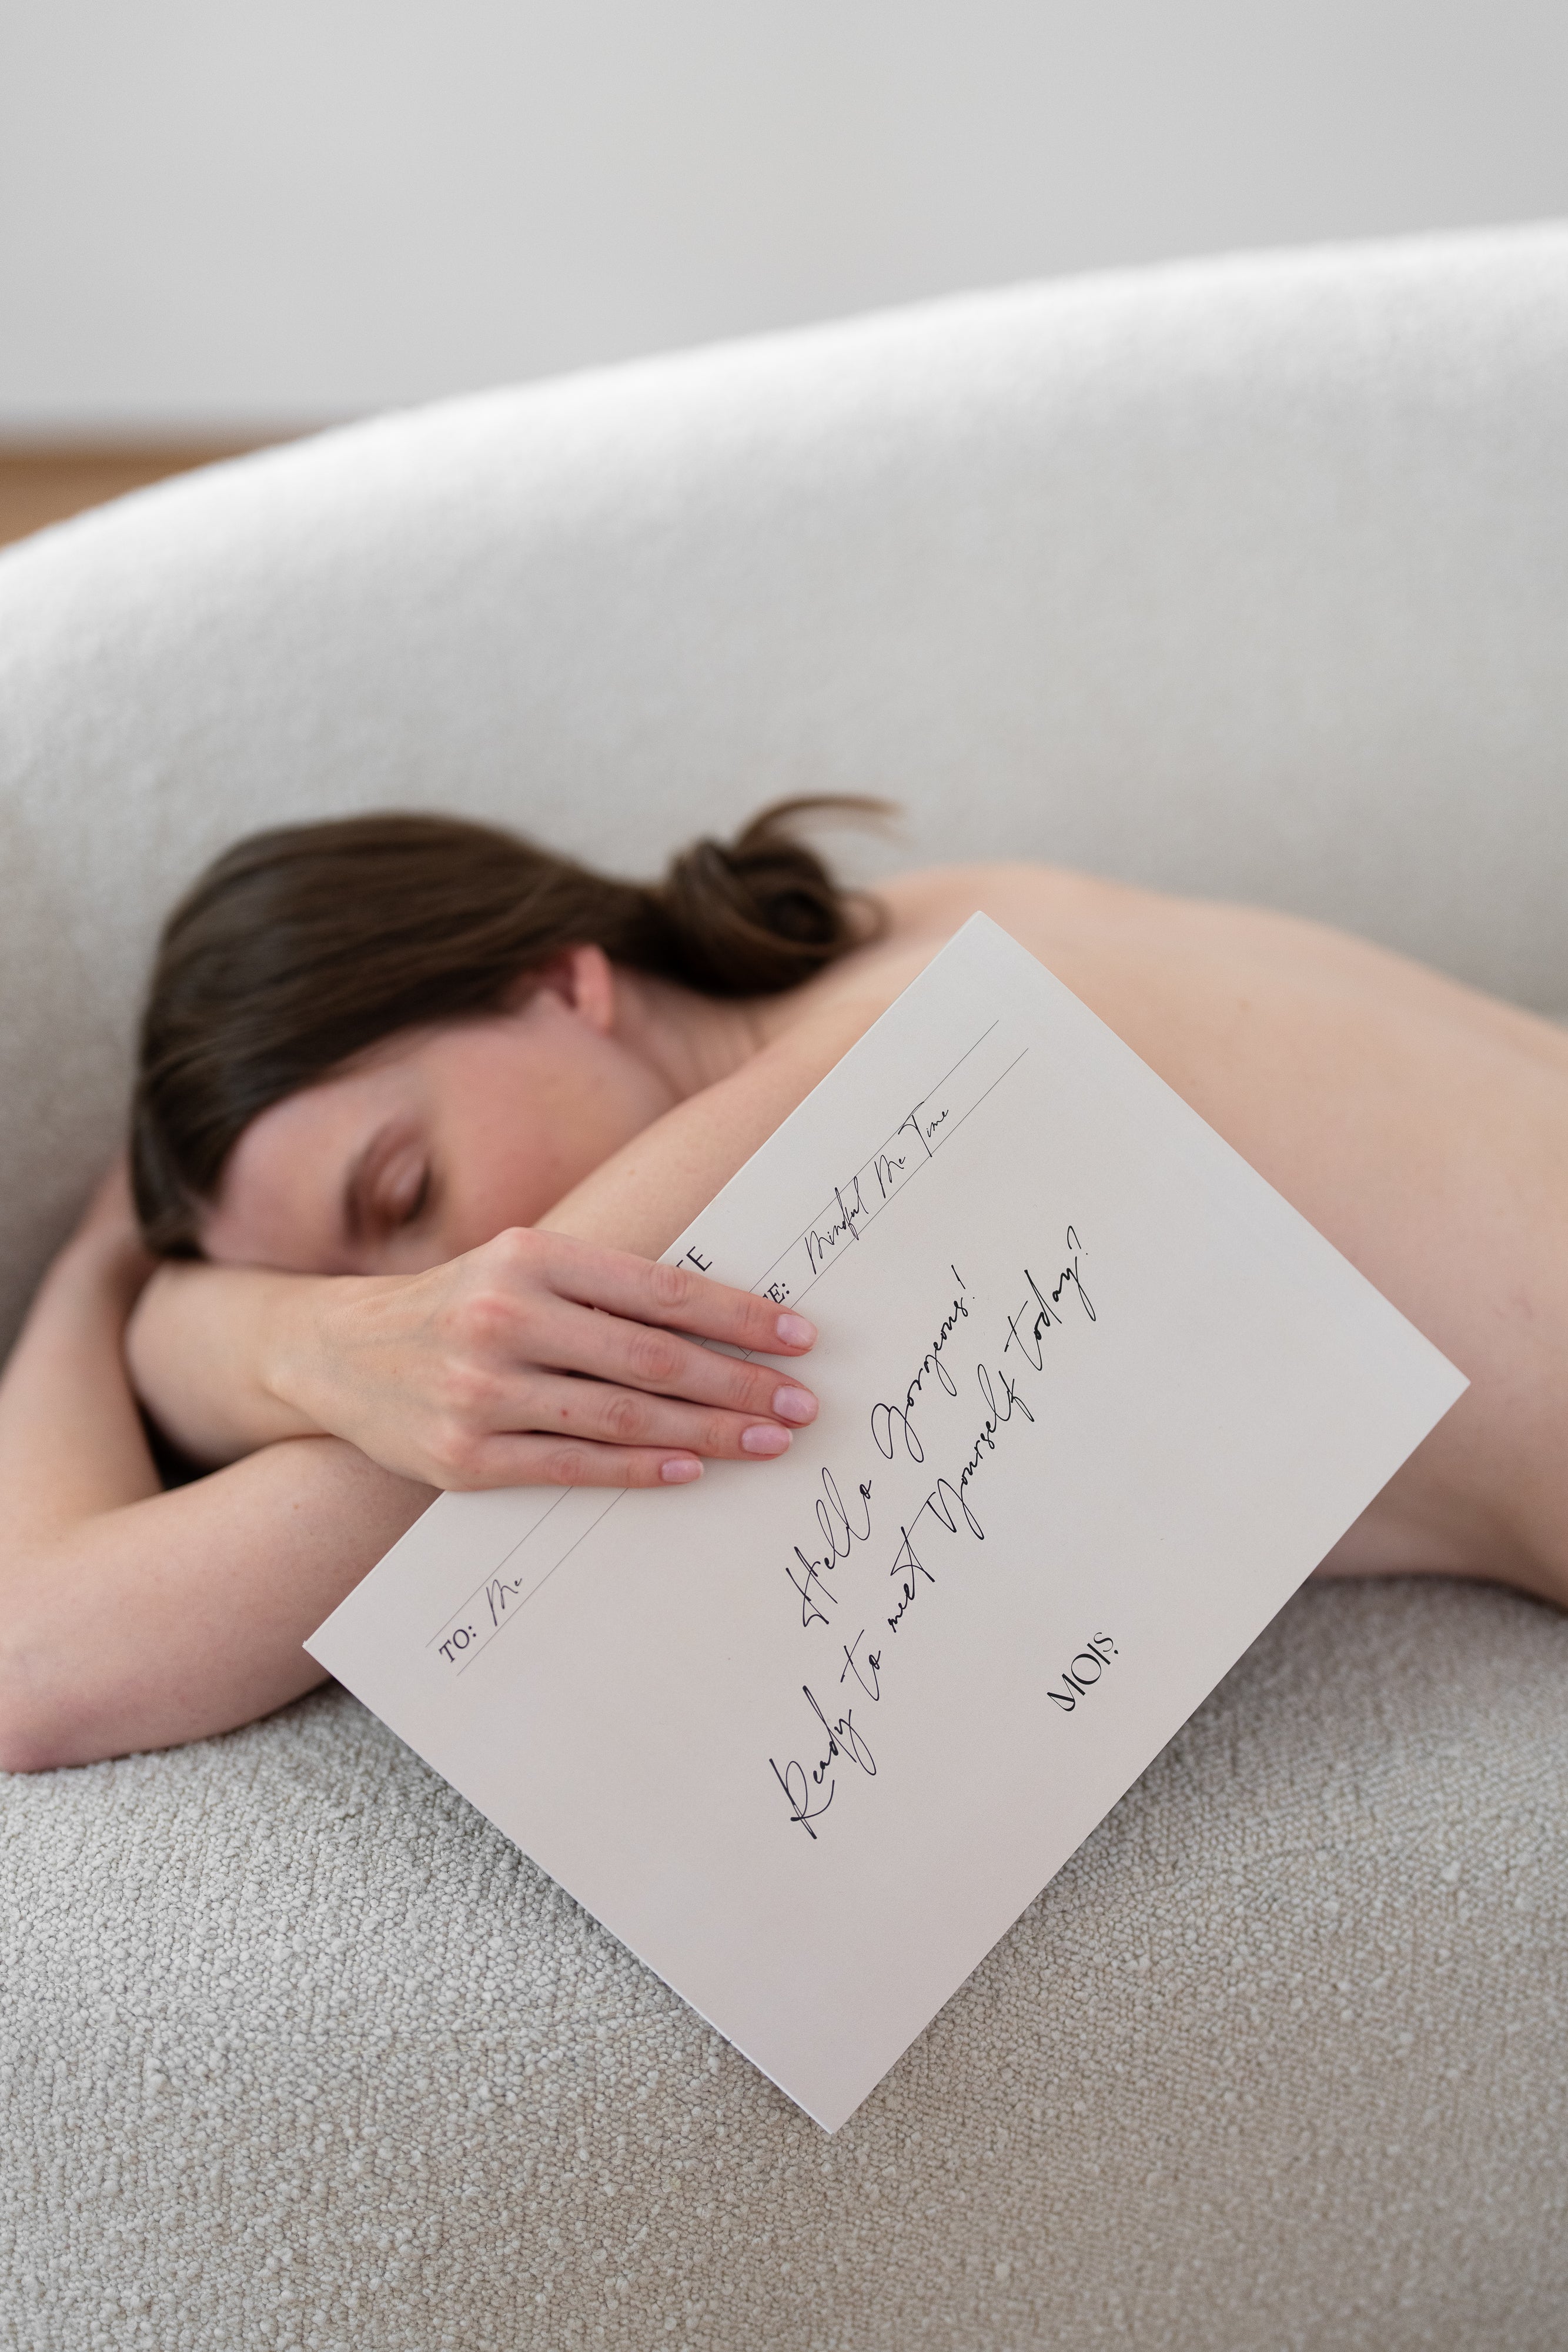 TO: Me
Mindful Me Time
Hello Gorgeous!
Ready to meet Yourself today?
MOIS